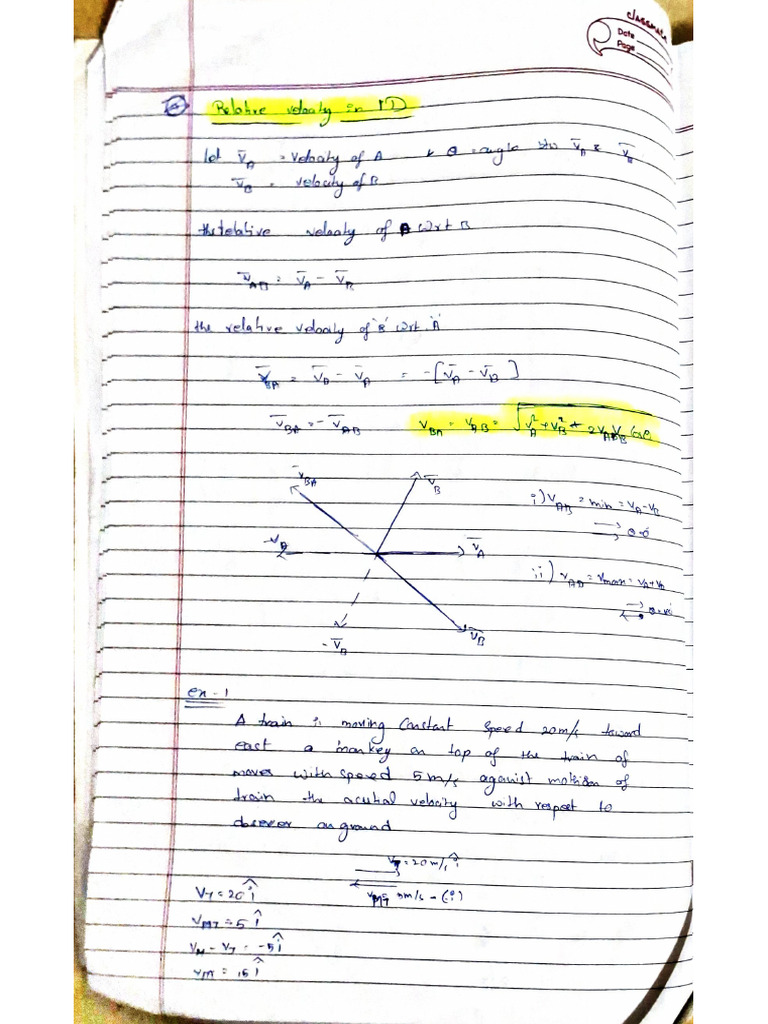 classmate
Date
Page
Relative velocity in 1D
let V̅_A = velocity of A & θ = angle b/w V̅_A & V̅_B
V̅_B = velocity of B
the relative velocity of A wrt B
V̅_AB = V̅_A - V̅_B
the relative velocity of 'B' wrt 'A'
V̅_BA = V̅_B - V̅_A = -[V̅_A - V̅_B]
V̅_BA = - V̅_AB V_BA = V_AB = √V_A² + V_B² + 2V_A V_B cosθ
V̅_BA V̅_B i) V_AB = min = V_A - V_B
-V_A V̅_A θ=0
ii) V_AB = Vmax = V_A + V_B
-V̅_B V̅_B
ex-1
A train is moving Constant Speed 20m/s toward
east a monkey on top of the train of
moves with speed 5 m/s against motion of
train the acutial velocity with respect to
observer on ground
V_T = 20 m/s î
V_T = 20 î V_MT = 5m/s - (î)
V_MT = 5 î
V_M - V_T = -5 î
V_M = 15 î